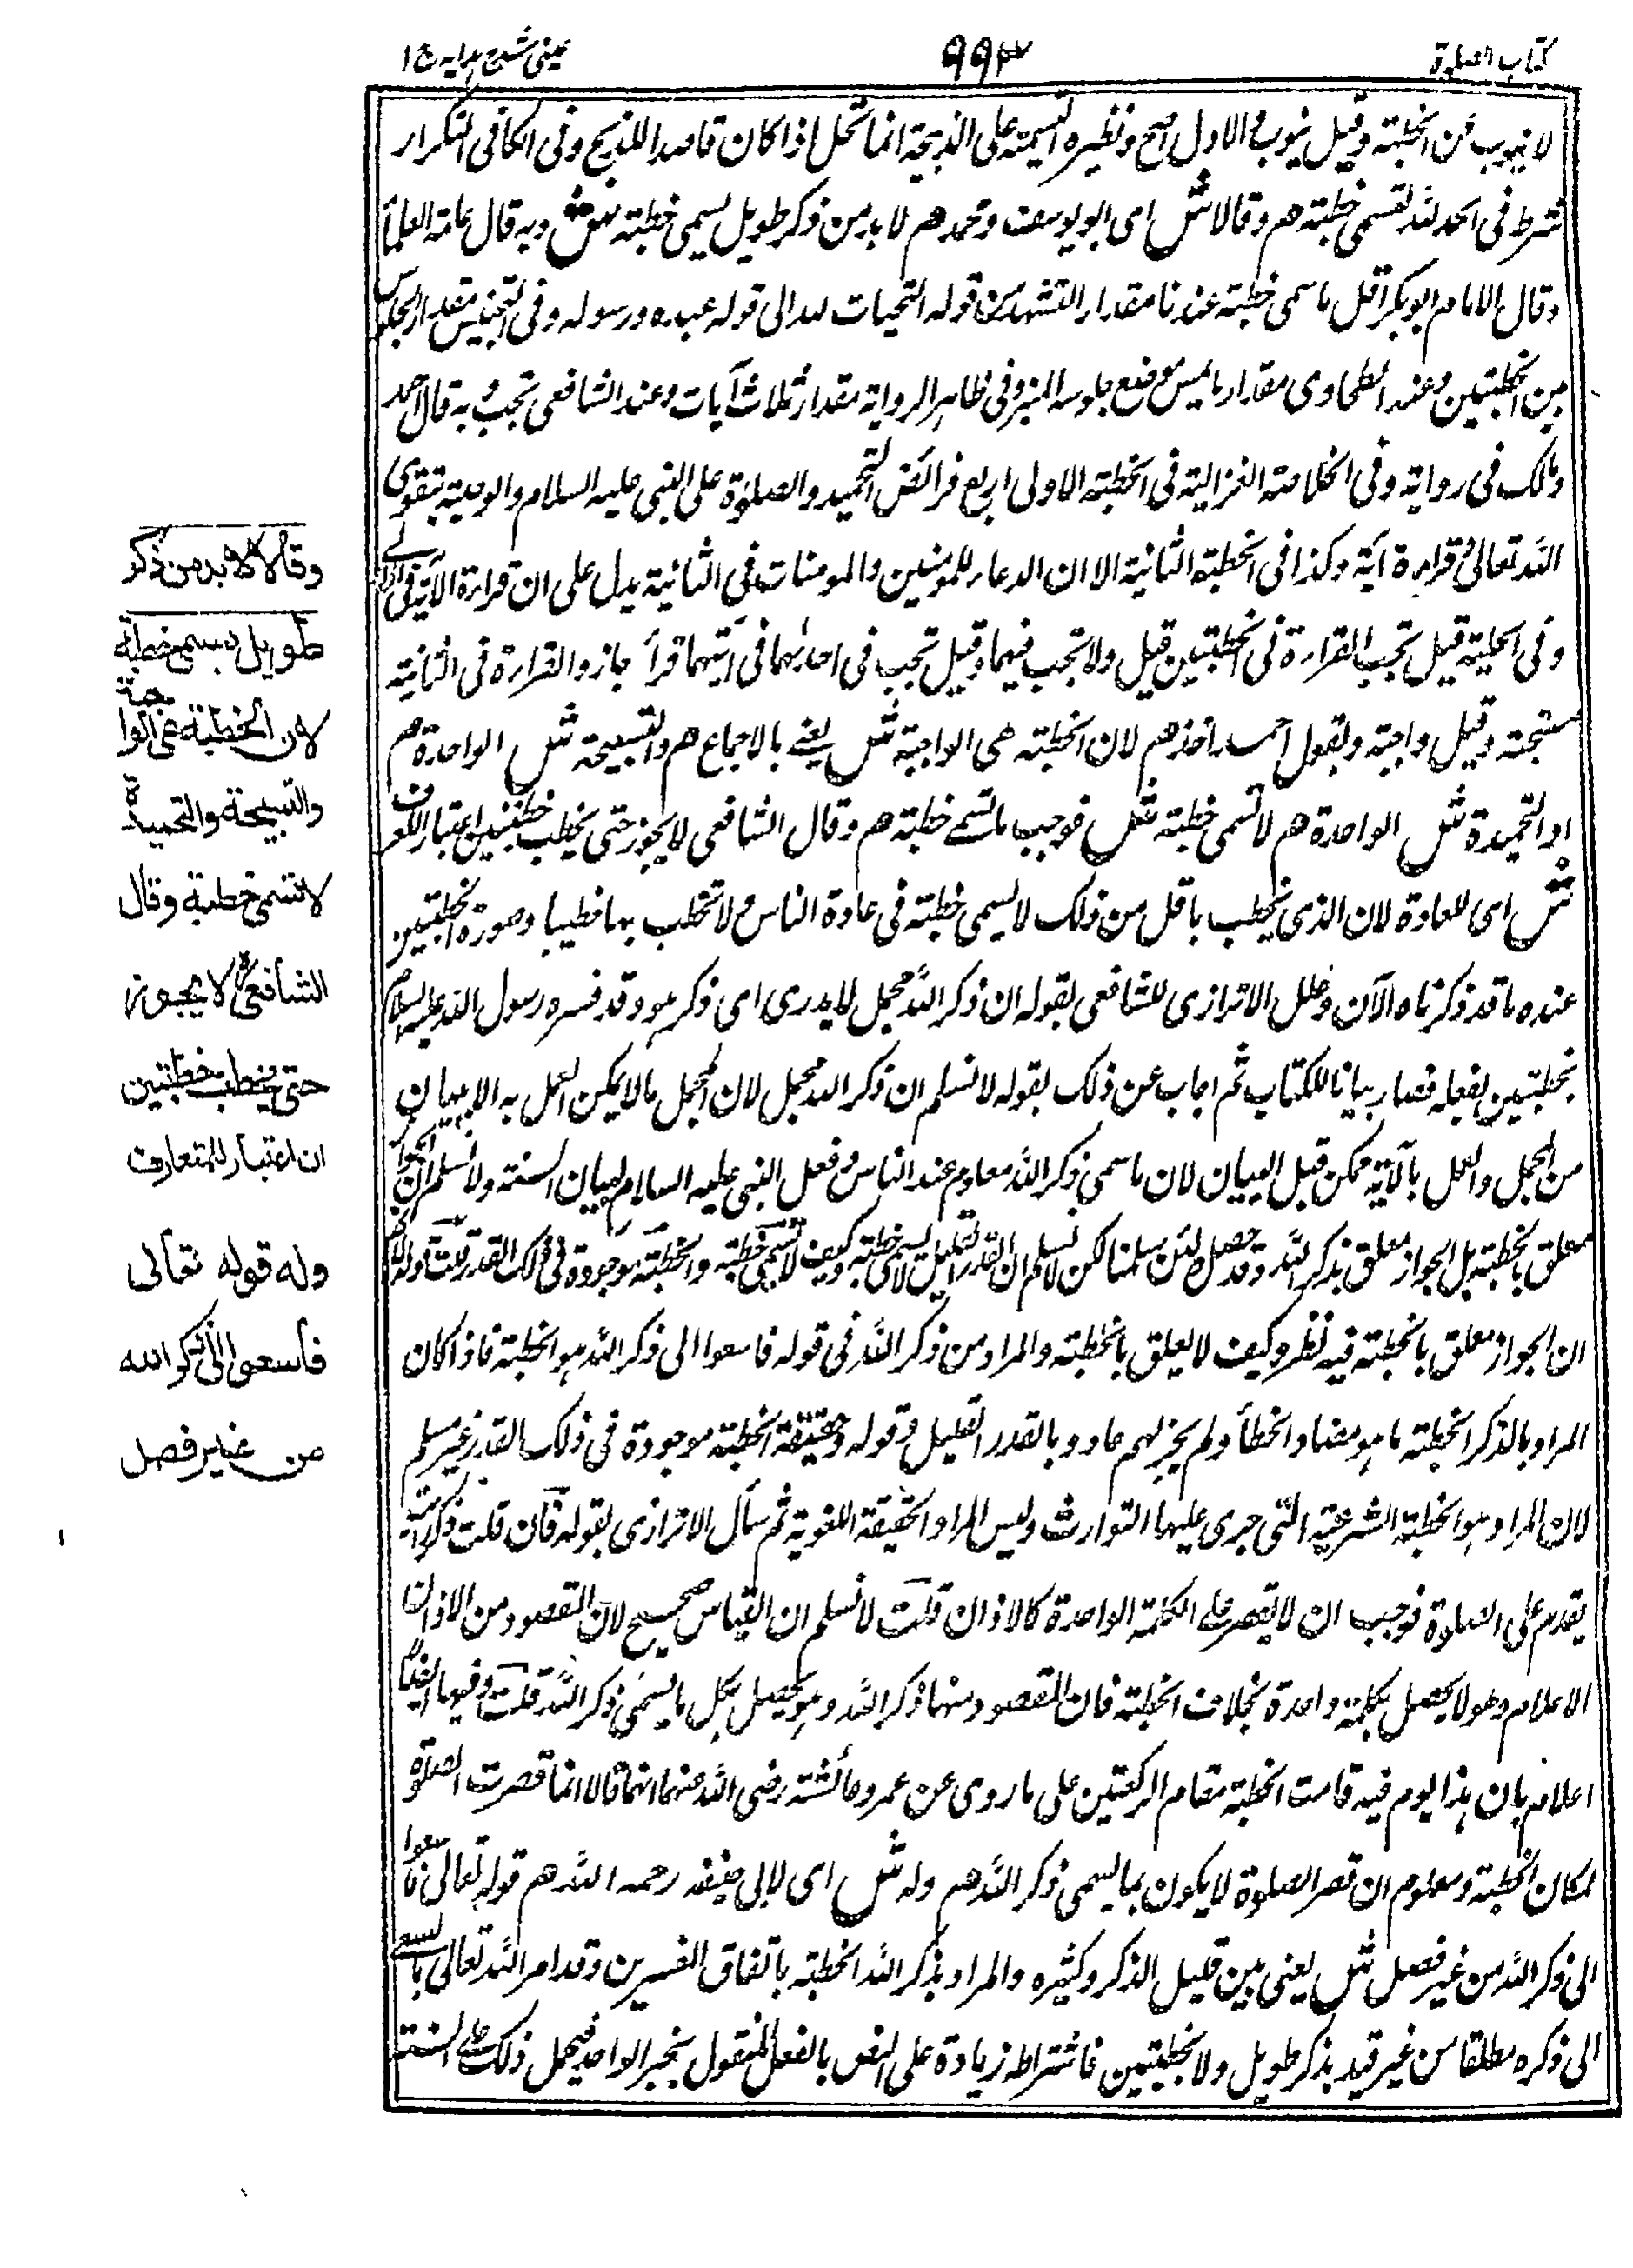 كتاب الصلوة
٩٩٣
عينى شرح هدايه ج ١
لا ينوب عن الخطبة وقيل ينوب والاول اصح ونظيره التسمية على الذبيحة انما تحل اذا كان قاصدا للذبح وفى الكافى التكرار
شرط فى الحمد لله لتسمى خطبة هم وقالا ش اى ابو يوسف ومحمد هم لا بد من ذكر طويل يسمى خطبة ش وبه قال عامة العلماء
وقال الامام ابو بكر اقل ما سمى خطبة عندنا مقدار التشهد من قوله التحيات لله الى قوله عبده ورسوله وفى التجنيس مقدار الجلوس
بين الخطبتين وعند الطحاوى مقدار ما يمس موضع جلوسه المنبر وفى ظاهر الرواية مقدار ثلاث آيات وعند الشافعى تجب وبه قال احمد
ومالك فى رواية وفى الخلاصة الغزالية فى الخطبة الاولى اربع فرائض التحميد والصلوة على النبى عليه السلام والوصية بتقوى
الله تعالى وقراءة آية وكذا فى الخطبة الثانية الا ان الدعاء للمؤمنين والمومنات فى الثانية يدل على ان قراءة الآية فى الاولى
وفى الحلية قيل تجب القراءة فى الخطبتين قيل ولا تجب فيهما وقيل تجب فى احداهما فى أيتهما قرأ جاز والقراءة فى الثانية
مستحبة وقيل واجبة وبقول احمد اخذ هم لان الخطبة هى الواجبة ش يعنى بالاجماع هم والتسبيحة ش الواحدة هم
او التحميدة ش الواحدة هم لا تسمى خطبة ش فوجب ما تسمى خطبة هم وقال الشافعى لا يجوز حتى يخطب خطبتين اعتبارا للتعارف
ش اى للعادة لان الذى يخطب باقل من ذلك لا يسمى خطبة فى عادة الناس ولا تخطب بها خطيبا وصورة الخطبتين
عنده ما قد ذكرناه الآن وعلل الاترازى للشافعى بقوله ان ذكر الله مجمل لا يدرى اى ذكر هو وقد فسره رسول الله عليه السلام
بخطبتين بفعله فصار بيانا للكتاب ثم اجاب عن ذلك بقوله لا نسلم ان ذكر الله مجمل لان المجمل ما لا يمكن العمل به الا ببيان
من المجمل والعمل بالآية ممكن قبل البيان لان ما سمى ذكر الله معلوم عند الناس وفعل النبى عليه السلام لبيان السنة ولا نسلم ان الجواز
معلق بالخطبة بل الجواز معلق بذكر الله وقد حصل ولئن سلمنا لكن لا نسلم ان القدر القليل لا يسمى خطبة وكيف لا تسمى خطبة والخطبة موجودة فى ذلك القدر قلت قوله لا نسلم
ان الجواز معلق بالخطبة فيه نظر وكيف لا يعلق بالخطبة والمراد من ذكر الله فى قوله فاسعوا الى ذكر الله هو الخطبة فاذا كان
المراد بالذكر الخطبة ما هو مضاد الخطأ ولم يجز لهم ما دو بالقدر القليل وقوله وحقيقة الخطبة موجودة فى ذلك القدر غير مسلم
لان المراد هو الخطبة الشرعية التى جرى عليها التوارث وليس المراد الحقيقة اللغوية ثم سأل الاترازى بقوله فان قلت ذكر الله
يقدم على الصلوة فوجب ان لا يقصر على الكلمة الواحدة كالاذان قلت لا نسلم ان القياس صحيح لان المقصود من الاذان
الاعلام وهو لا يحصل بكلمة واحدة بخلاف الخطبة فان المقصود منها ذكر الله وهو يحصل بكل ما يسمى ذكر الله قلت وفيها ايضا
اعلام بان هذا يوم فيه قامت الخطبة مقام الركعتين على ما روى عن عمر وعائشة رضى الله عنهما انهما قالا انما قصرت الصلوة
لمكان الخطبة ومعلوم ان قصر الصلوة لا يكون بما يسمى ذكر الله هم وله ش اى لابى حنيفة رحمه الله هم قوله تعالى فاسعوا
الى ذكر الله من غير فصل ش يعنى بين قليل الذكر وكثيره والمراد بذكر الله الخطبة باتفاق المفسرين وقد امر الله تعالى بالسعى
الى ذكره مطلقا من غير قيد بذكر طويل ولا بخطبتين فاشتراطه زيادة على النص بالفعل المنقول بخبر الواحد فيحمل ذلك على السنة
وقالا لا بد من ذكر
طويل يسمى خطبة
لان الخطبة هى الواجبة
والتسبيحة والتحميدة
لا تسمى خطبة وقال
الشافعى لا يجوز
حتى يخطب خطبتين
اعتبارا للمتعارف
وله قوله تعالى
فاسعوا الى ذكر الله
من غير فصل